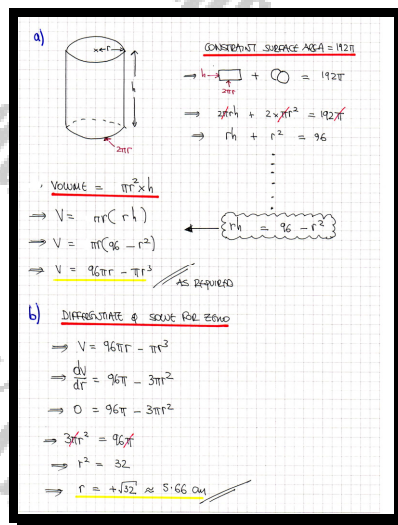 a)
r
h
2πr
CONSTRAINT SURFACE AREA = 192π
⇒ h ▭ + ◯◯ = 192π
2πr
⇒ 2πrh + 2×πr² = 192π
⇒ rh + r² = 96
rh = 96 - r²
VOLUME = πr² × h
⇒ V = πr( rh )
⇒ V = πr(96 - r²)
⇒ V = 96πr - πr³
AS REQUIRED
b) DIFFERENTIATE & SOLVE FOR ZERO
⇒ V = 96πr - πr³
⇒ dV/dr = 96π - 3πr²
⇒ 0 = 96π - 3πr²
⇒ 3πr² = 96π
⇒ r² = 32
⇒ r = +√32 ≈ 5.66 cm